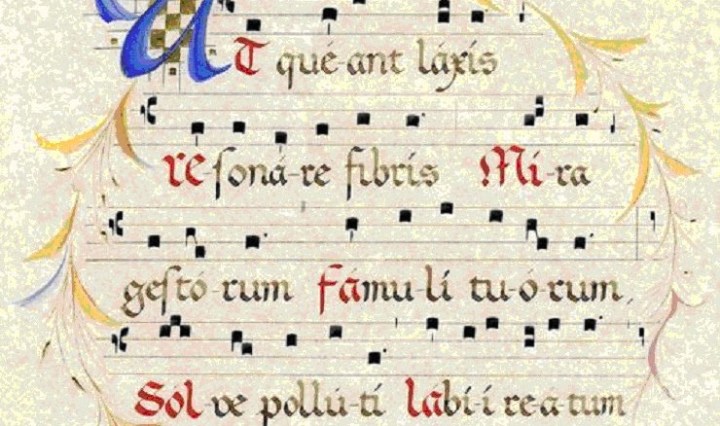 UT que-ant láxis
re-ſoná-re fibris Mi-ra
geſtó-rum fámu-li tu-ó-rum,
Sol-ve pollú-ti labi-i re-a-tum